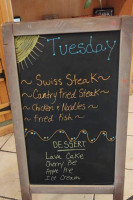 Tuesday
~ Swiss Steak ~
~ Cantry Fried Steak ~
~ Chicken & Noodles ~
~ Fried Fish ~
DESSERT
Lava Cake
Cherry Pie
Apple Pie
Ice Cream